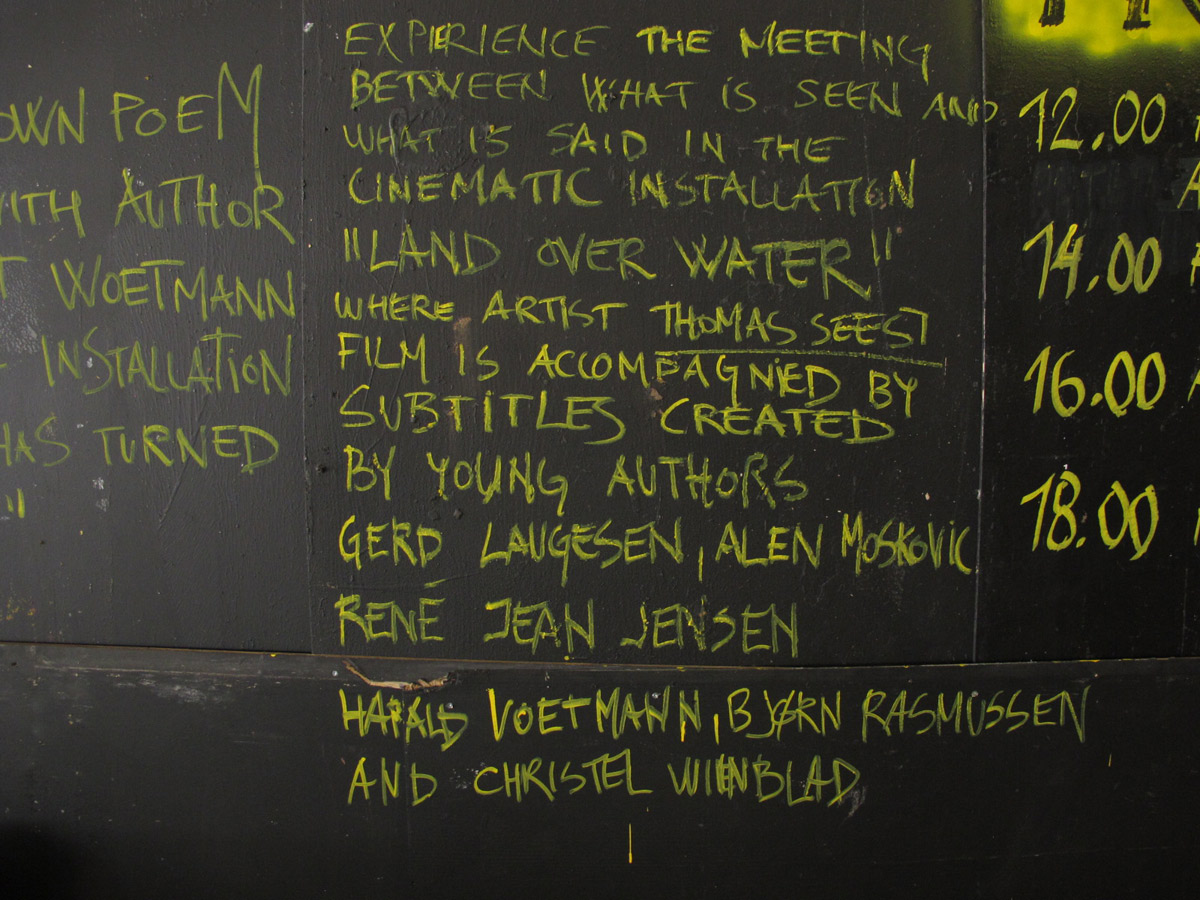 OWN POEM
WITH AUTHOR
T WOETMANN
INSTALLATION
HAS TURNED
"
EXPERIENCE THE MEETING
BETWEEN WHAT IS SEEN AND
WHAT IS SAID IN THE
CINEMATIC INSTALLATION
"LAND OVER WATER"
WHERE ARTIST THOMAS SEEST
FILM IS ACCOMPAGNIED BY
SUBTITLES CREATED
BY YOUNG AUTHORS
GERD LAUGESEN, ALEN MOSKOVIC
RENÉ JEAN JENSEN
HARALD VOETMANN, BJØRN RASMUSSEN
AND CHRISTEL WIINBLAD
12.00
14.00
16.00
18.00